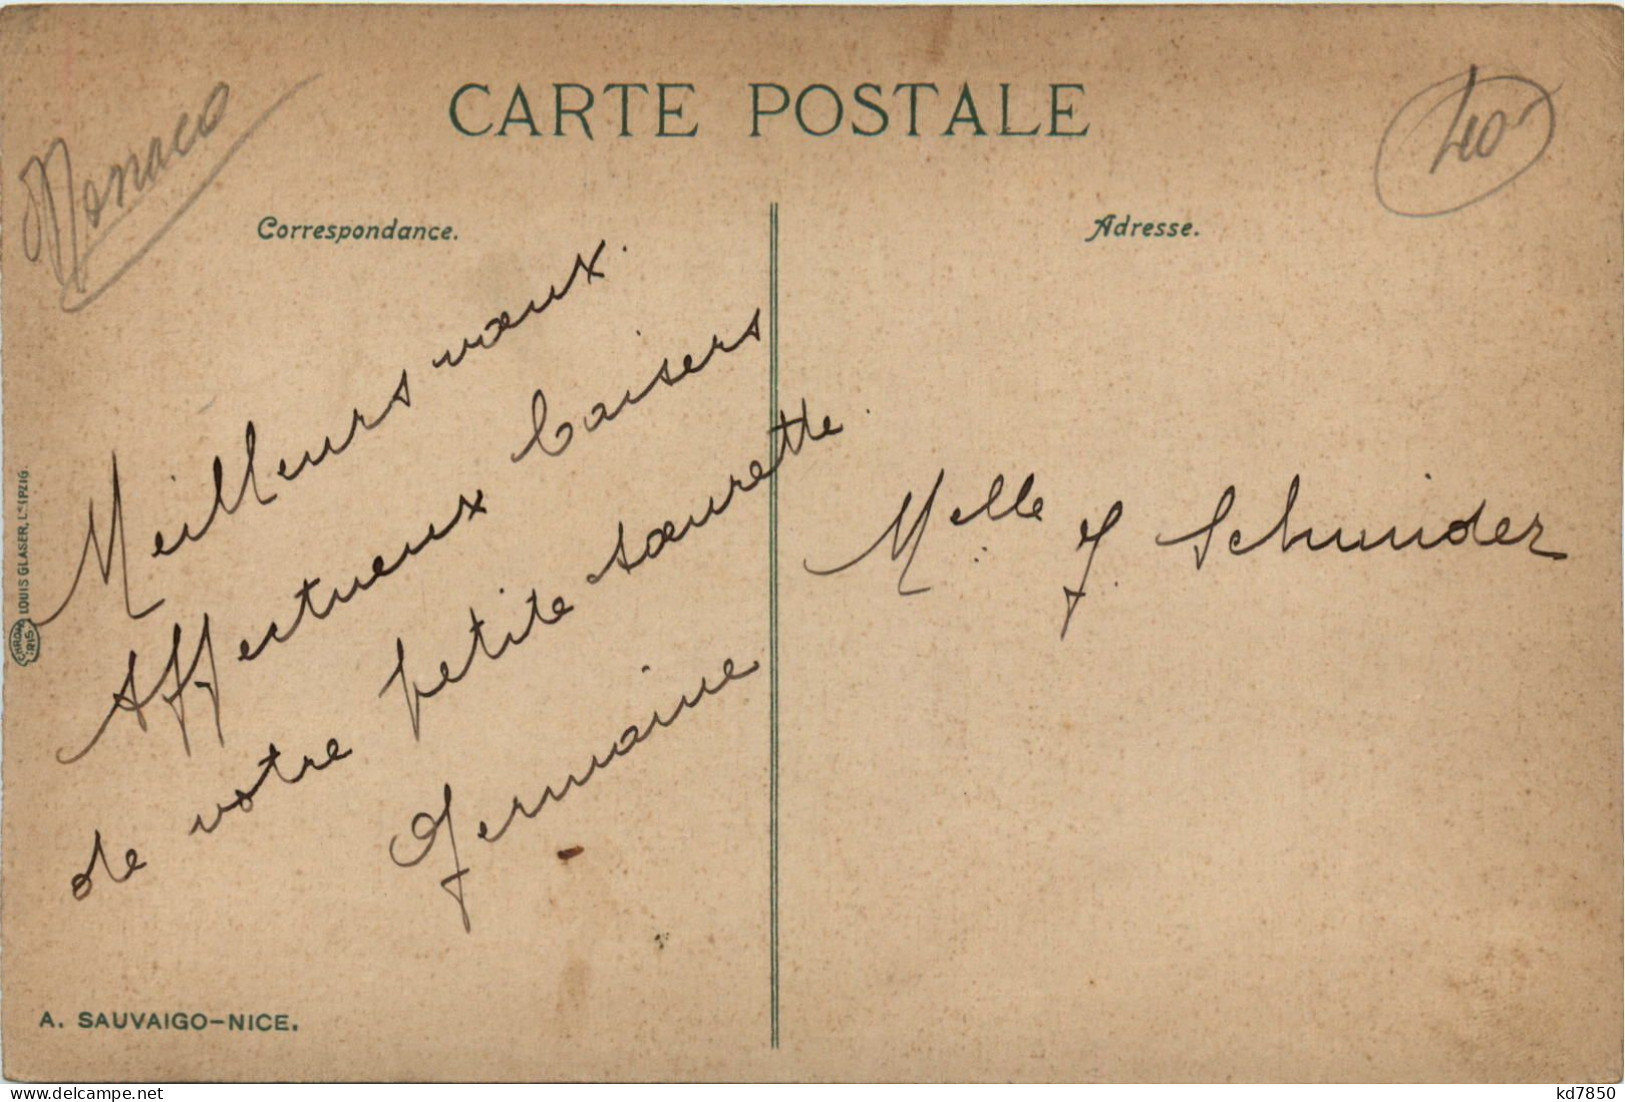 CARTE POSTALE
Monaco
40-
Correspondance.
Adresse.
Meilleurs vœux.
Affectueux baisers
de votre petite sœurette.
Germaine
Melle J. Schnuider
CHROM IRIS LOUIS GLASER, LEIPZIG.
A. SAUVAIGO-NICE.
delcampe.net
kd7850